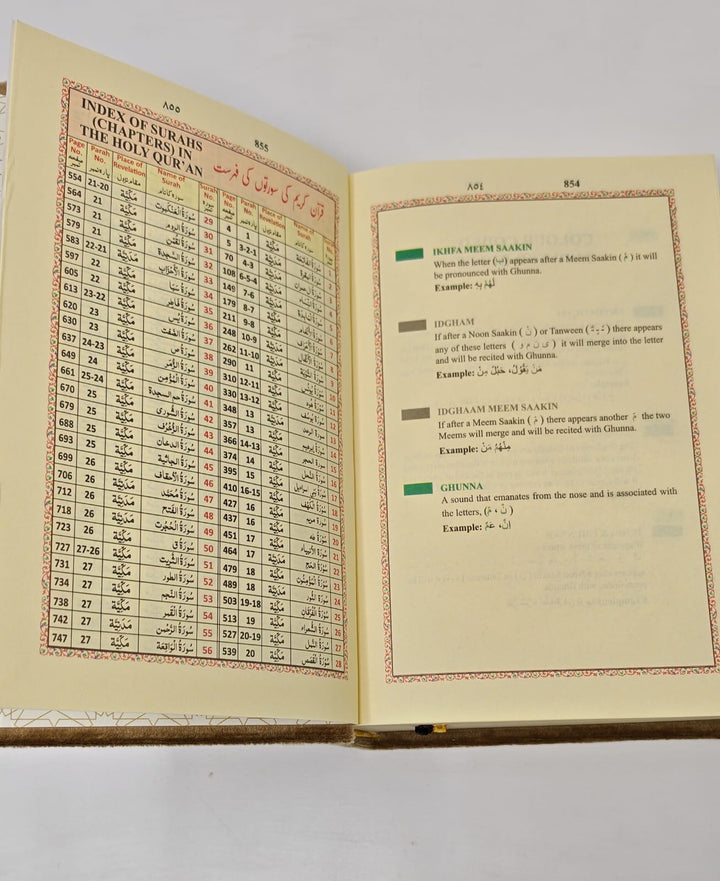 ٨٥٥ 855
INDEX OF SURAHS
(CHAPTERS) IN
THE HOLY QUR'AN
قرآن کریم کی سورتوں کی فہرست
Page No. Parah No. Place of Revelation Name of Surah Surah No. Page No. Parah No. Place of Revelation Name of Surah No.
صفحہ نمبر پارہ نمبر مقام نزول سورۃ کا نام سورۃ نمبر صفحہ نمبر پارہ نمبر مقام نزول
554 21-20 مَكِّيَّة سُورَةُ الْعَنْكَبُوت 29 4 1 مَكِّيَّة سُورَةُ الْفَاتِحَة 1
564 21 مَكِّيَّة سُورَةُ الرُّوم 30 5 3-2-1 مَدَنِيَّة سُورَةُ الْبَقَرَة 2
573 21 مَكِّيَّة سُورَةُ لُقْمٰن 31 70 4-3 مَدَنِيَّة سُورَةُ اٰلِ عِمْرَان 3
579 21 مَكِّيَّة سُورَةُ السَّجْدَة 32 108 6-5-4 مَدَنِيَّة سُورَةُ النِّسَاء 4
583 22-21 مَدَنِيَّة سُورَةُ الْأَحْزَاب 33 149 7-6 مَدَنِيَّة سُورَةُ الْمَائِدَة 5
597 22 مَكِّيَّة سُورَةُ سَبَا 34 179 8-7 مَكِّيَّة سُورَةُ الْأَنْعَام 6
605 22 مَكِّيَّة سُورَةُ فَاطِر 35 211 9-8 مَكِّيَّة سُورَةُ الْأَعْرَاف 7
613 23-22 مَكِّيَّة سُورَةُ يٰسٓ 36 248 10-9 مَدَنِيَّة سُورَةُ الْأَنْفَال 8
620 23 مَكِّيَّة سُورَةُ الصّٰفّٰت 37 262 11-10 مَدَنِيَّة سُورَةُ التَّوْبَة 9
630 23 مَكِّيَّة سُورَةُ صٓ 38 290 11 مَكِّيَّة سُورَةُ يُونُس 10
637 24-23 مَكِّيَّة سُورَةُ الزُّمَر 39 310 12-11 مَكِّيَّة سُورَةُ هُود 11
649 24 مَكِّيَّة سُورَةُ الْمُؤْمِن 40 330 13-12 مَكِّيَّة سُورَةُ يُوسُف 12
661 25-24 مَكِّيَّة سُورَةُ حٰم السجدة 41 348 13 مَدَنِيَّة سُورَةُ الرَّعْد 13
670 25 مَكِّيَّة سُورَةُ الشُّورٰى 42 357 13 مَكِّيَّة سُورَةُ إِبْرَاهِيم 14
679 25 مَكِّيَّة سُورَةُ الزُّخْرُف 43 366 14-13 مَكِّيَّة سُورَةُ الْحِجْر 15
688 25 مَكِّيَّة سُورَةُ الدُّخَان 44 374 14 مَكِّيَّة سُورَةُ النَّحْل 16
693 25 مَكِّيَّة سُورَةُ الْجَاثِيَة 45 395 15 مَكِّيَّة سُورَةُ بَنِي إِسْرَائِيل 17
699 26 مَكِّيَّة سُورَةُ الْأَحْقَاف 46 410 16-15 مَكِّيَّة سُورَةُ الْكَهْف 18
706 26 مَدَنِيَّة سُورَةُ مُحَمَّد 47 427 16 مَكِّيَّة سُورَةُ مَرْيَم 19
712 26 مَدَنِيَّة سُورَةُ الْفَتْح 48 437 16 مَكِّيَّة سُورَةُ طٰهٰ 20
718 26 مَدَنِيَّة سُورَةُ الْحُجُرٰت 49 451 17 مَكِّيَّة سُورَةُ الْأَنْبِيَاء 21
723 26 مَكِّيَّة سُورَةُ قٓ 50 464 17 مَدَنِيَّة سُورَةُ الْحَجّ 22
727 27-26 مَكِّيَّة سُورَةُ الذّٰرِيٰت 51 479 18 مَكِّيَّة سُورَةُ الْمُؤْمِنُون 23
731 27 مَكِّيَّة سُورَةُ الطُّور 52 489 18 مَدَنِيَّة سُورَةُ النُّور 24
734 27 مَكِّيَّة سُورَةُ النَّجْم 53 503 19-18 مَكِّيَّة سُورَةُ الْفُرْقَان 25
738 27 مَكِّيَّة سُورَةُ الْقَمَر 54 513 19 مَكِّيَّة سُورَةُ الشُّعَرَاء 26
742 27 مَدَنِيَّة سُورَةُ الرَّحْمٰن 55 527 20-19 مَكِّيَّة سُورَةُ النَّمْل 27
747 27 مَكِّيَّة سُورَةُ الْوَاقِعَة 56 539 20 مَكِّيَّة سُورَةُ الْقَصَص 28
٨٥٤ 854
IKHFA MEEM SAAKIN
When the letter (ب) appears after a Meem Saakin (مْ) it will
be pronounced with Ghunna.
Example: لَهُمْ بِهٖ
IDGHAM
If after a Noon Saakin (نْ) or Tanween (ـًـٍـٌ) there appears
any of these letters (ى ن م و) it will merge into the letter
and will be recited with Ghunna.
Example: مَنْ يَّقُوْلُ، حَبْلٌ مِّنْ
IDGHAAM MEEM SAAKIN
If after a Meem Saakin (مْ) there appears another مّ the two
Meems will merge and will be recited with Ghunna.
Example: مِثْلَهُمْ مَّنْ
GHUNNA
A sound that emanates from the nose and is associated with
the letters, (نّ ، مّ)
Example: اِنَّ، عَمَّ